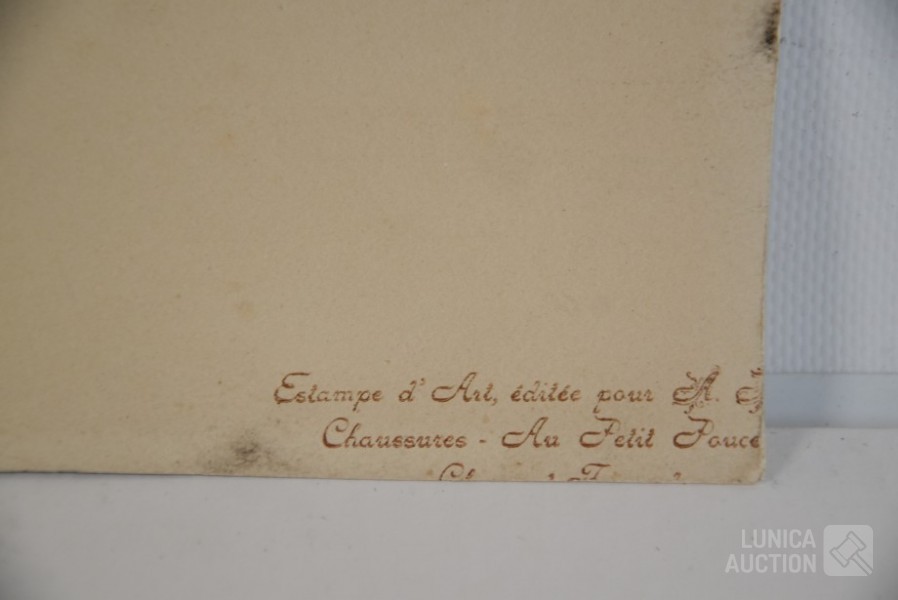 Estampe d'Art, éditée pour A.
Chaussures - Au Petit Pouce
LUNICA
AUCTION